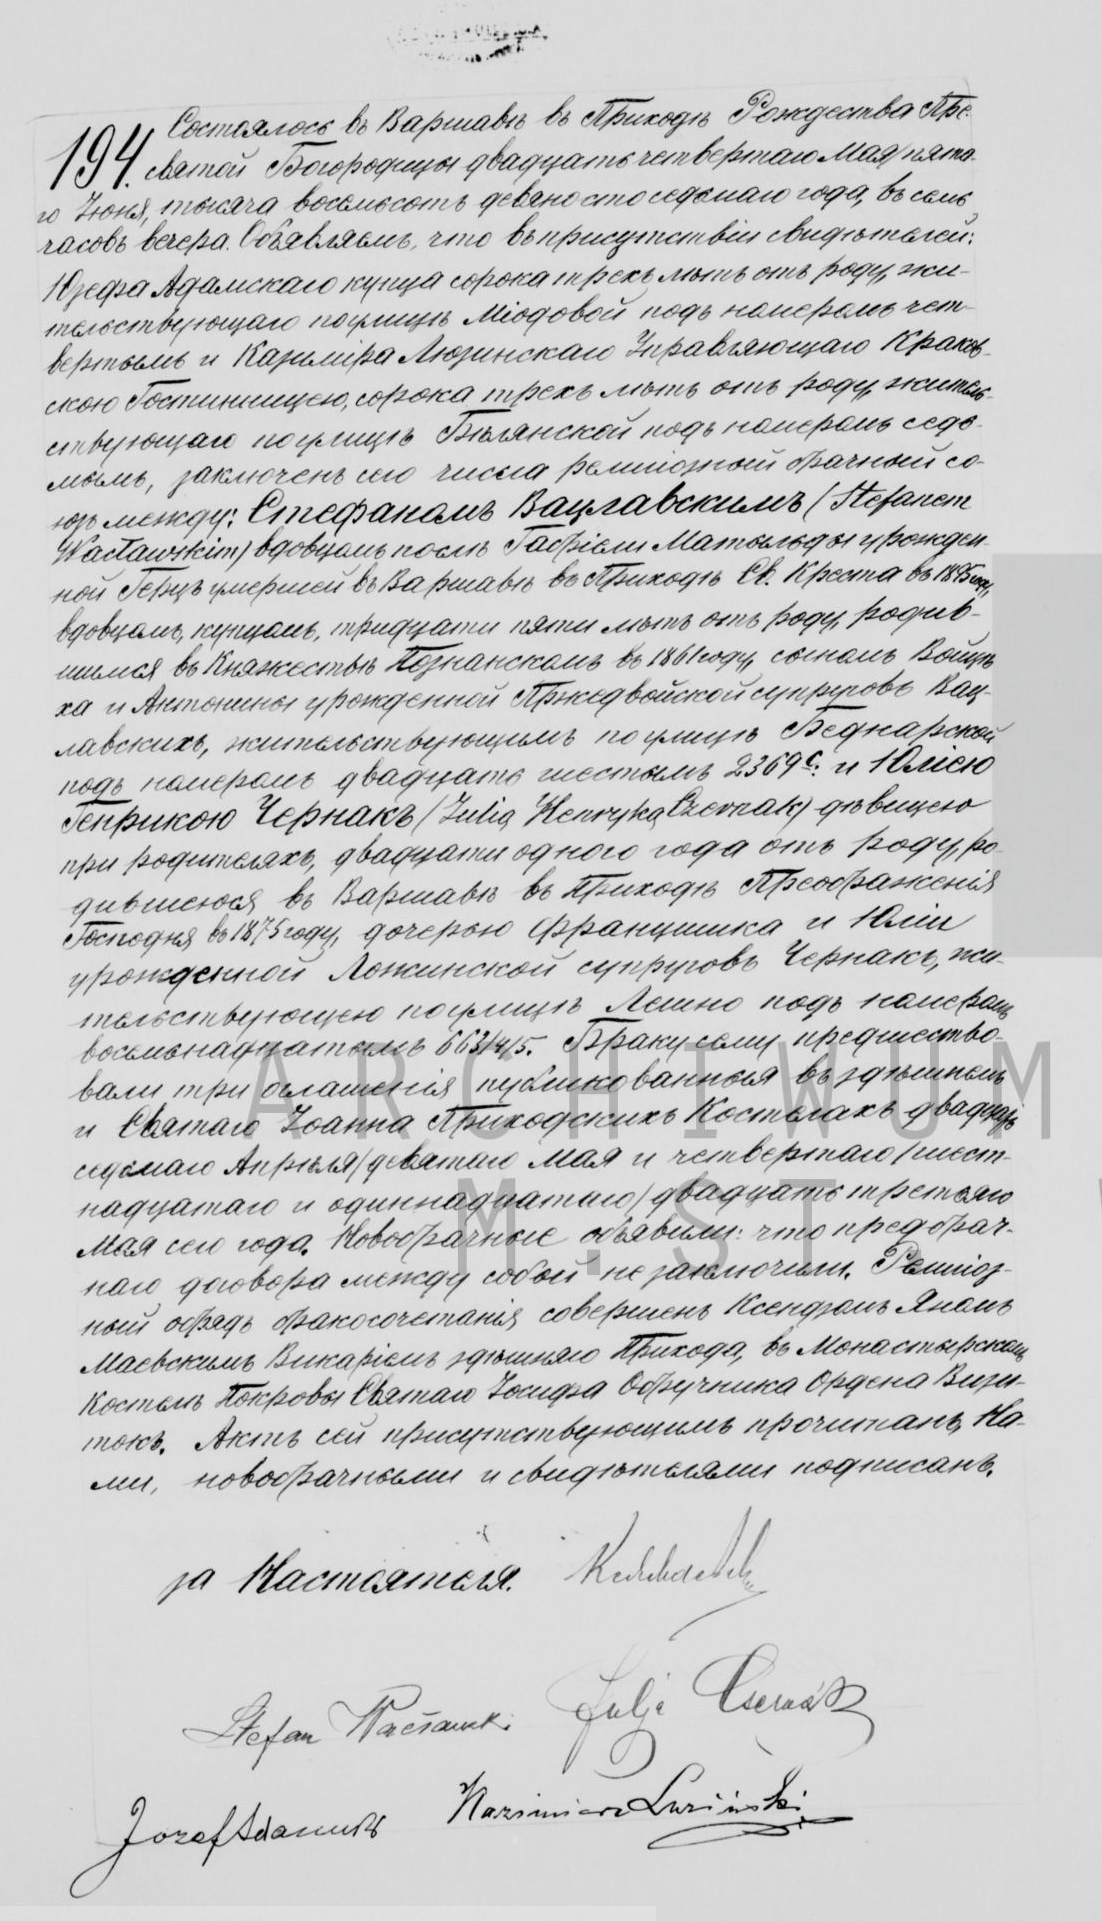 194.
Состоялось въ Варшавѣ въ Приходѣ Рождества Пре-
святой Богородицы двадцать четвертаго Мая/пята-
го Іюня, тысяча восемьсотъ девяносто седьмаго года, въ семь
часовъ вечера. Объявляемъ, что въ присутствіи свидѣтелей:
Юзефа Адамскаго купца сорока трехъ лѣтъ отъ роду, жи-
тельствующаго по улицѣ Міодовой подъ номеромъ чет-
вертымъ и Казиміра Люзинскаго Управляющаго Краков-
скою Гостинницею, сорока трехъ лѣтъ отъ роду, житель-
ствующаго по улицѣ Бѣлянской подъ номеромъ седь-
мымъ, заключенъ сего числа религіозный брачный со-
юзъ между: Стефаномъ Вацлавскимъ (Stefanem
Wacławskim) вдовцомъ послѣ Габріели Матыльды урожден-
ной Герцъ умершей въ Варшавѣ въ Приходѣ Св. Креста въ 1895 году,
вдовцомъ, купцомъ, тридцати пяти лѣтъ отъ роду, родив-
шимся въ Княжествѣ Познанскомъ въ 1861 году, сыномъ Войцѣ-
ха и Антонины урожденной Пржедвойской супруговъ Вац-
лавскихъ, жительствующимъ по улицѣ Беднарской
подъ номеромъ двадцать шестымъ 2369 c. и Юліею
Генрикою Чернакъ (Julią Henryką Czernak) дѣвицею
при родителяхъ, двадцати одного года отъ роду, ро-
дившеюся въ Варшавѣ въ Приходѣ Преображенія
Господня въ 1875 году, дочерью Францишка и Юліи
урожденной Ложинской супруговъ Чернакъ, жи-
тельствующею по улицѣ Лешно подъ номеромъ
восемьнадцатымъ 663/4/5. Браку сему предшество-
вали три оглашенія публикованныя въ здѣшнемъ
и Святаго Іоанна Приходскихъ Костелахъ двадцать
седьмаго Апрѣля/девятаго Мая и четвертаго/шест-
надцатаго и одиннадцатаго/двадцать третьяго
Мая сего года. Новобрачные объявили: что предбрач-
наго договора между собой не заключили. Религіоз-
ный обрядъ бракосочетанія совершенъ Ксендзомъ Яномъ
Маевскимъ Викаріемъ здѣшняго Прихода, въ Монастырскомъ
Костелѣ Покровы Святаго Іосифа Обручника Ордена Визи-
токъ. Актъ сей присутствующимъ прочитанъ, На-
ми, новобрачными и свидѣтелями подписанъ.
за Настоятеля.
Stefan Wacławski Julja Czernak
Józef Adamski Kazimierz Luziński
ARCHIWUM
M. ST.